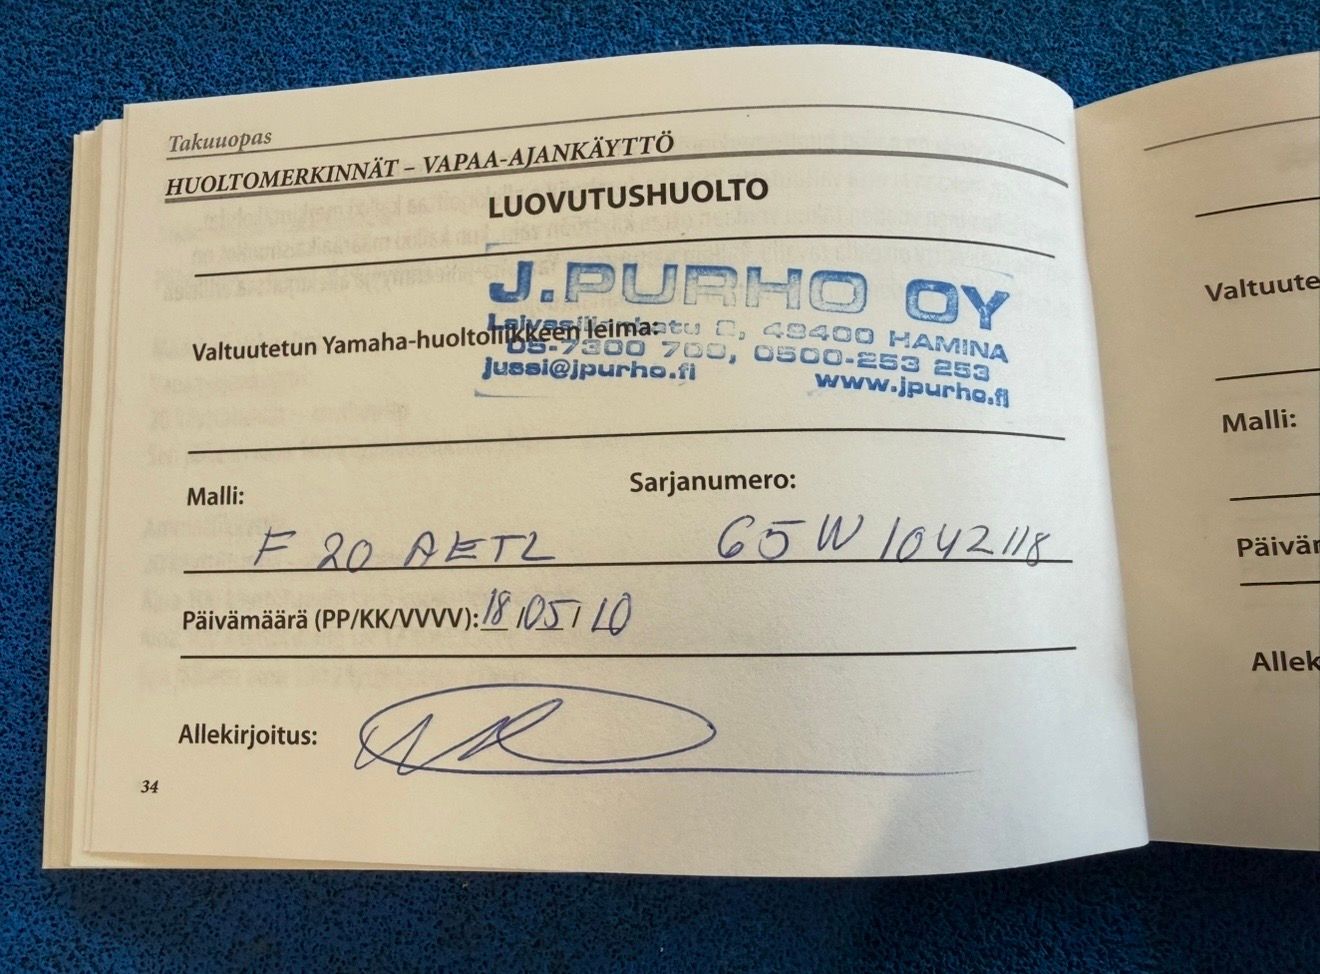 Takuuopas
HUOLTOMERKINNÄT – VAPAA-AJANKÄYTTÖ
LUOVUTUSHUOLTO
J.PURHO OY
2, 49400 HAMINA
Valtuutetun Yamaha-huoltoliikkeen leima:
05-7300 700, 0500-253 253
jussi@jpurho.fi www.jpurho.fi
Malli: Sarjanumero:
F 20 AETL 65W 1042118
Päivämäärä (PP/KK/VVVV): 18/05/10
Allekirjoitus:
34
Valtuute
Malli:
Päivär
Allek